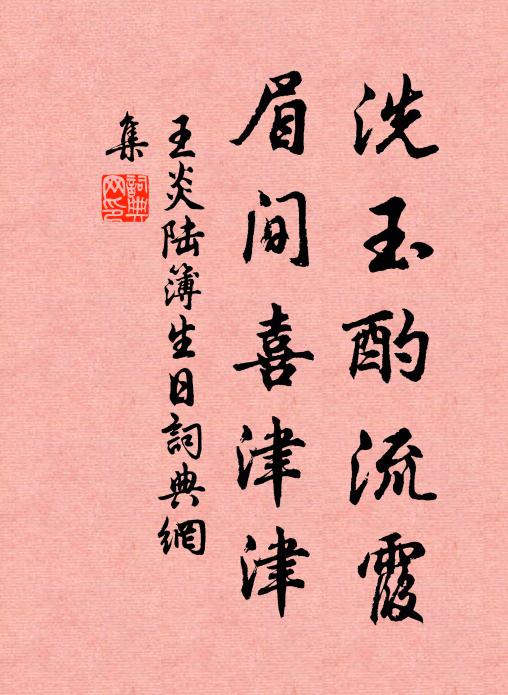 洗玉酌流霞
眉间喜津津
王炎陆簿生日詞典網
集
詞典网印